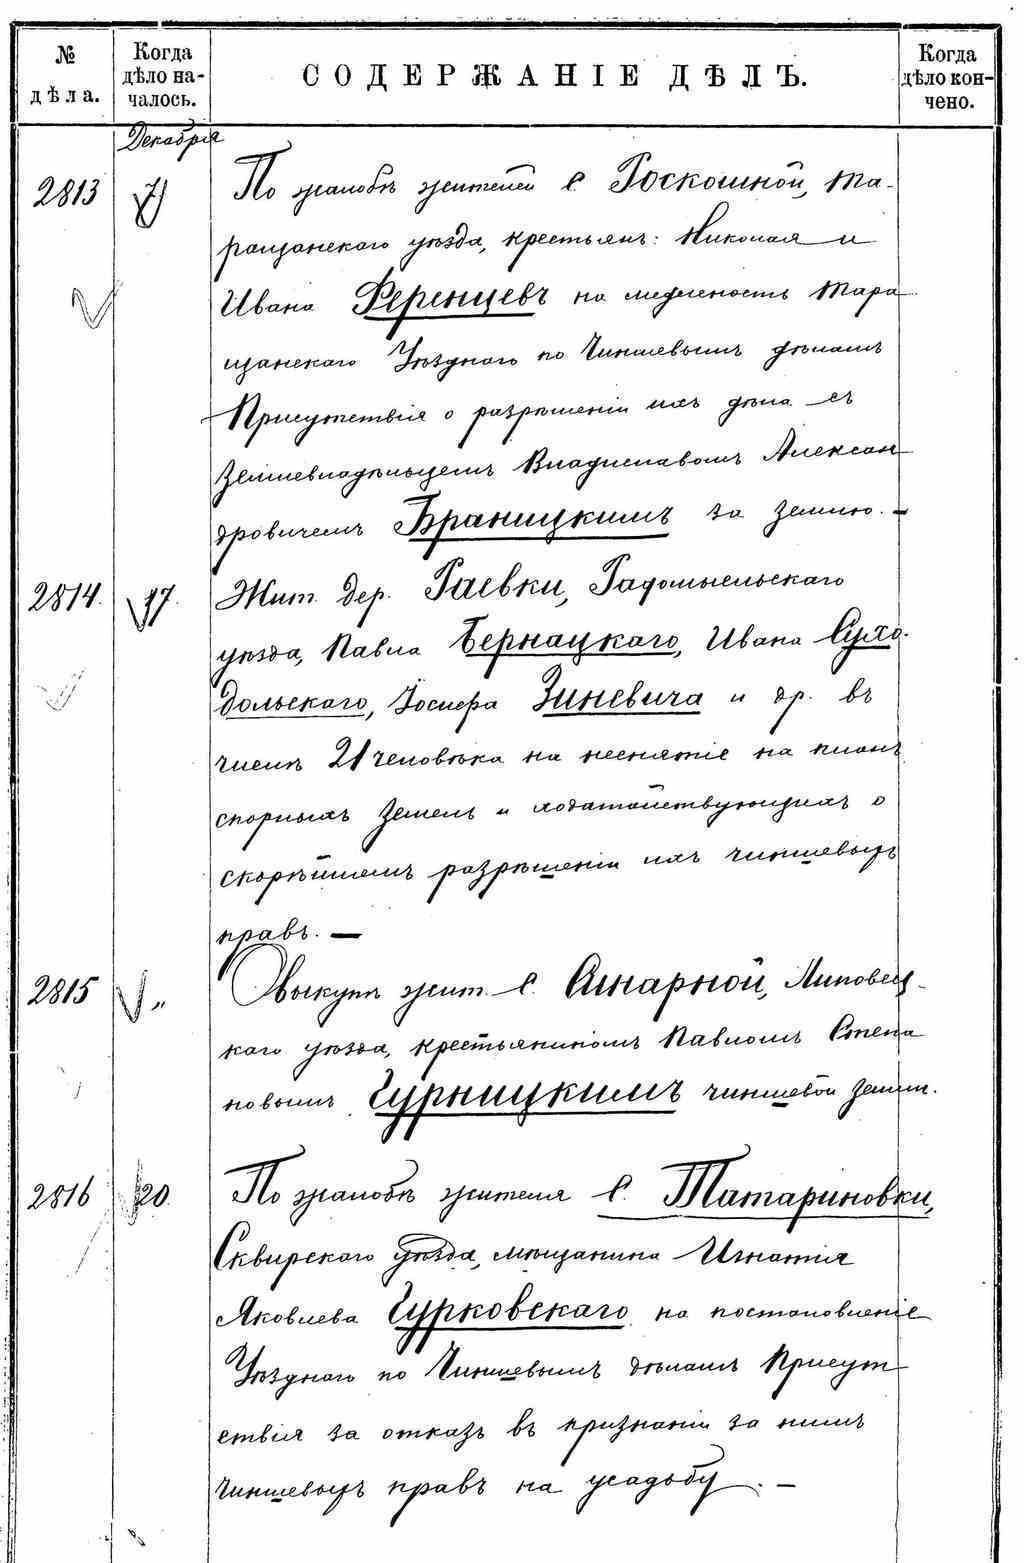 № дѣла.
Когда дѣло на-
чалось.
СОДЕРЖАНІЕ ДѢЛЪ.
Когда дѣло кон-
чено.
Декабря
2813 7 По жалобѣ жителей с. Роскошной, Та-
ращанскаго уѣзда, крестьянъ: Николая и
Ивана Ференцевъ на медленость Тара
щанскаго Уѣзднаго по Чиншевымъ дѣламъ
Присутствія о разрѣшеніи ихъ дѣла съ
Землевладѣльцемъ Владиславомъ Алексан
дровичемъ Браницкимъ за землю. —
2814. 17. Жит. дер. Раевки, Радомысльскаго
уѣзда, Павла Бернацкаго, Ивана Сухо-
дольскаго, Іосифа Зиневича и др. въ
числѣ 21 человѣка на неснятіе на планъ
спорныхъ земель и ходатайствующихъ о
скорѣйшемъ разрѣшеніи ихъ чиншевыхъ
правъ. —
2815 „ О выкупѣ жит. с. Яснарной, Липовец-
каго уѣзда, крестьяниномъ Павломъ Степа
новымъ Гурницкимъ чиншевой земли.
2816 20. По жалобѣ жителя с. Татариновки,
Сквирскаго уѣзда, мѣщанина Игнатія
Яковлева Гурковскаго на постановленіе
Уѣзднаго по Чиншевымъ дѣламъ Присут
ствія за отказъ въ признаніи за нимъ
чиншевыхъ правъ на усадьбу. —